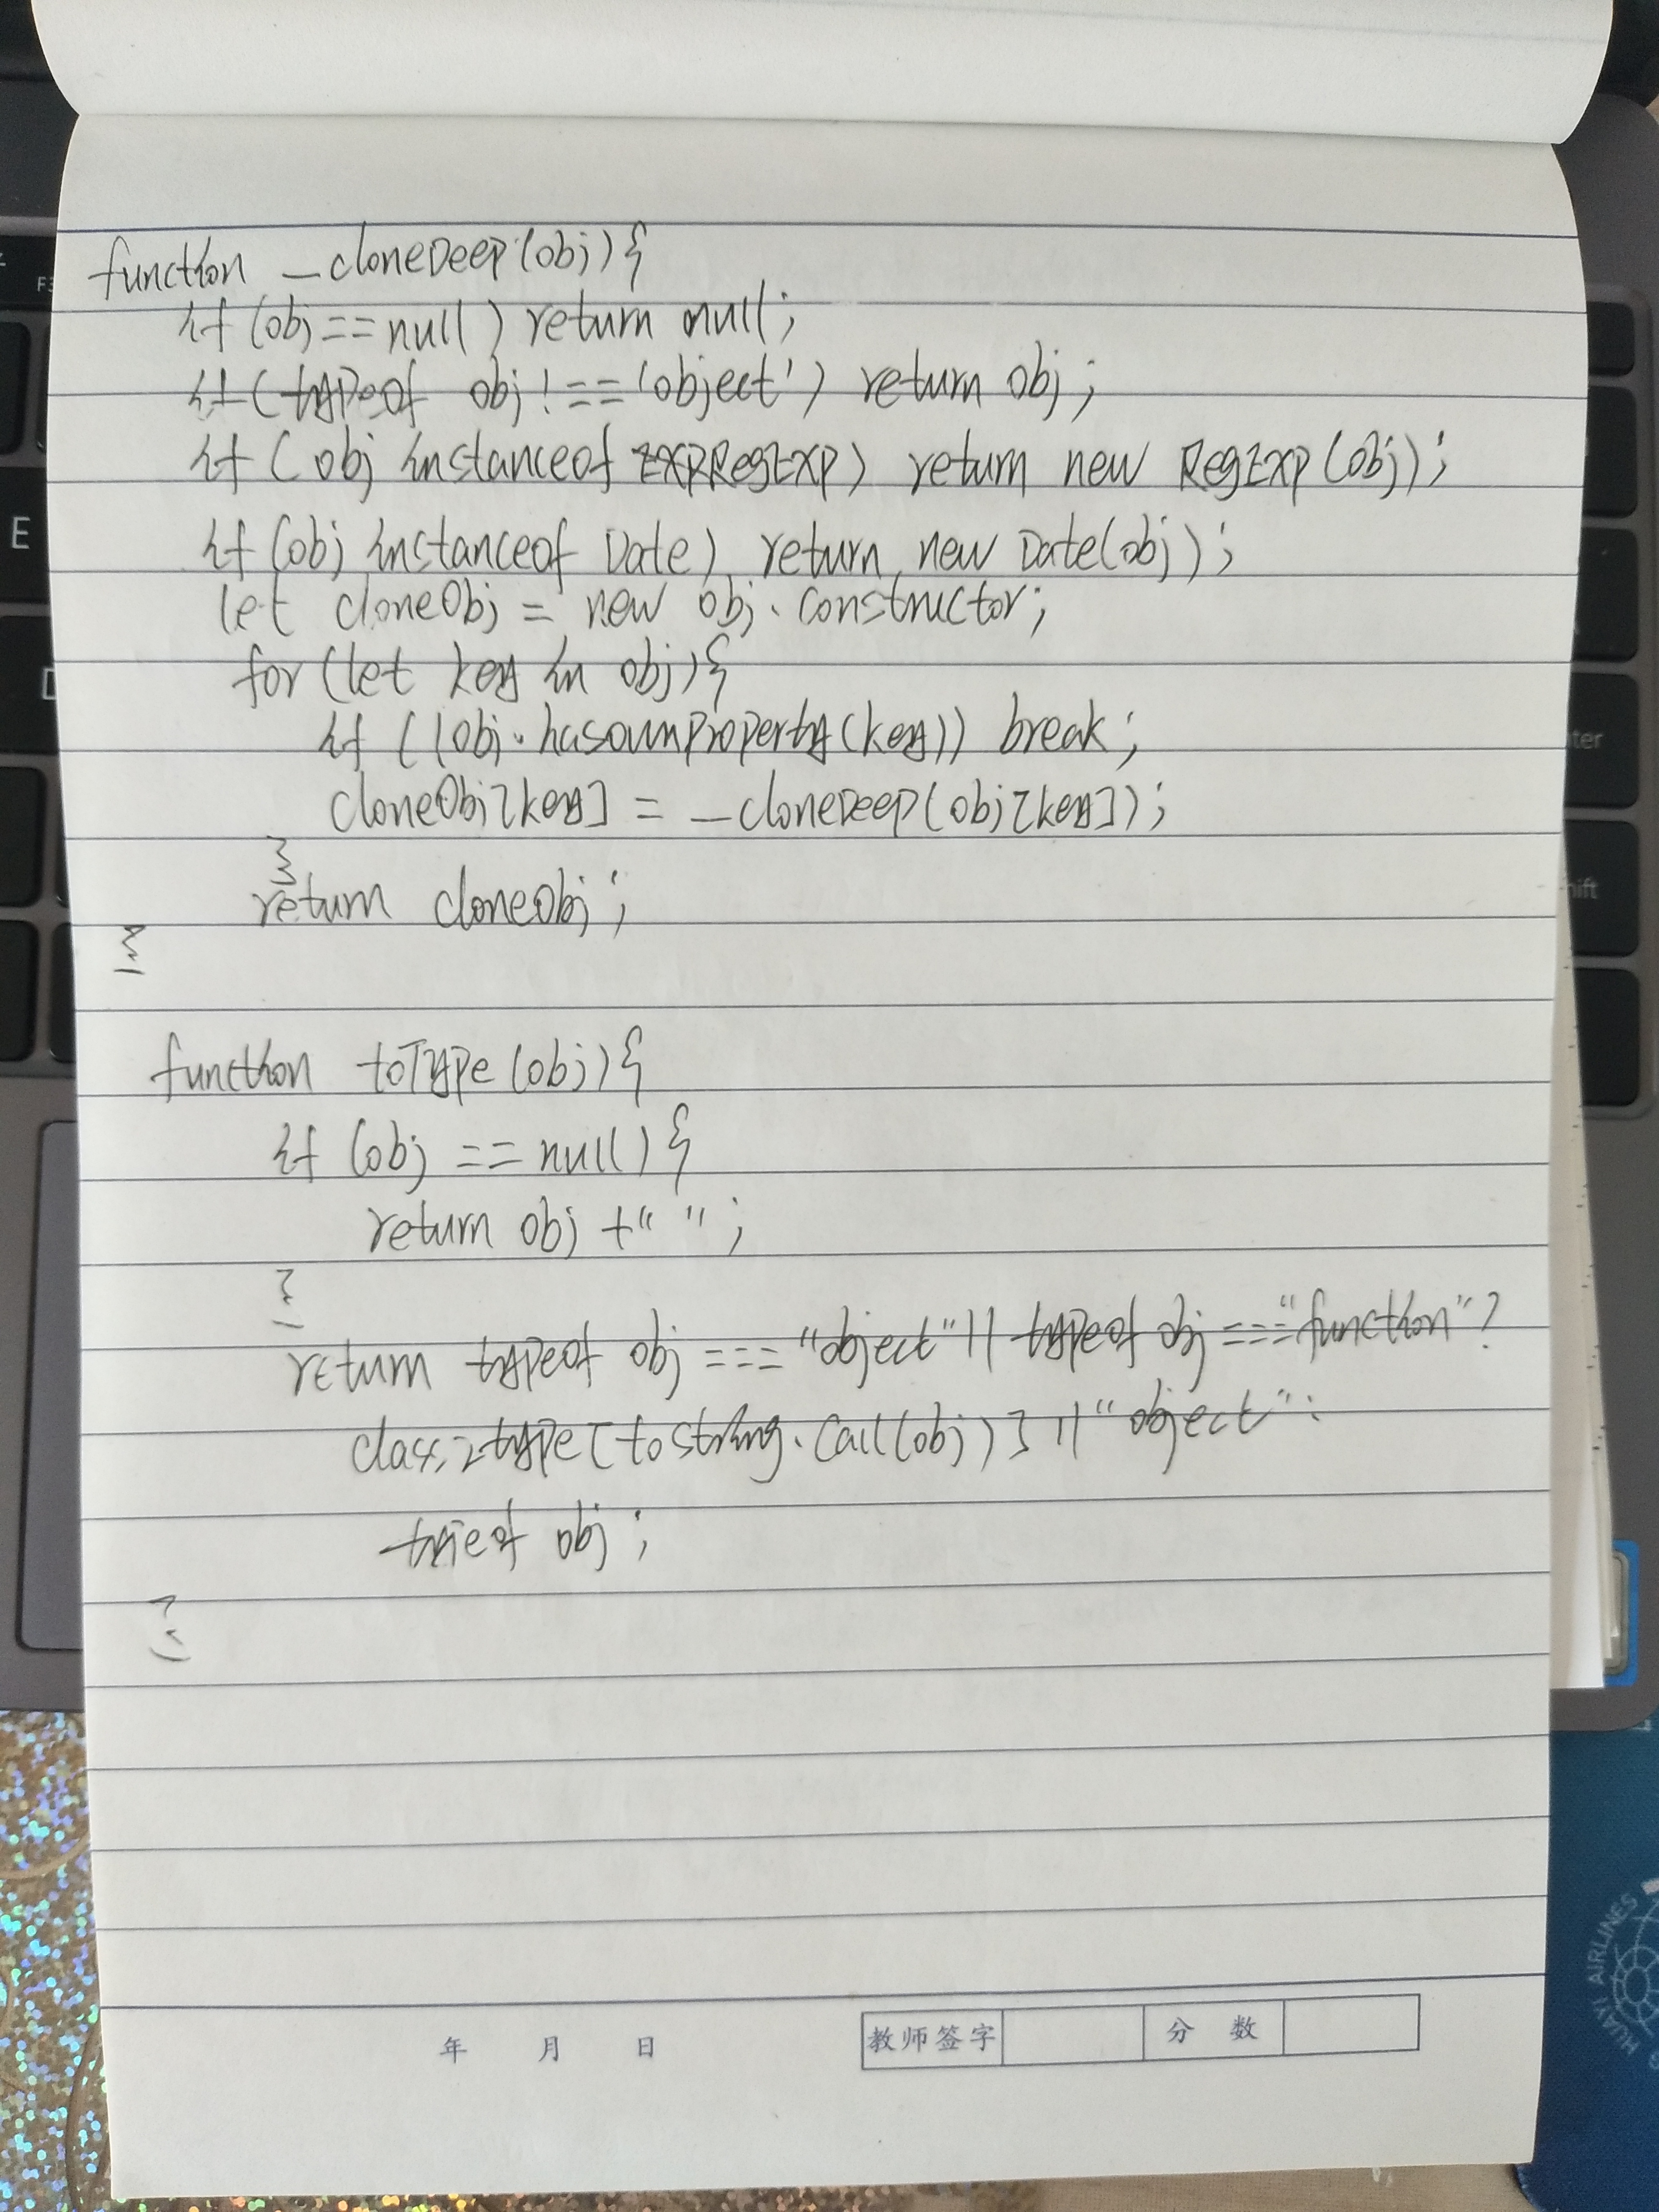 function _cloneDeep(obj){
if (obj==null) return null;
if (typeof obj !== 'object') return obj;
if (obj instanceof RegExp) return new RegExp(obj);
if (obj instanceof Date) return new Date(obj);
let cloneObj = new obj.constructor;
for (let key in obj){
if (!obj.hasownProperty(key)) break;
cloneObj[key] = _cloneDeep(obj[key]);
}
return cloneObj;
}
function toType(obj){
if (obj == null){
return obj + " ";
}
return typeof obj === "object" || typeof obj === "function" ?
class2type[tostring.call(obj)] || "object" :
typeof obj;
}
年 月 日 教师签字 分 数
E
HUAYI AIRLINES